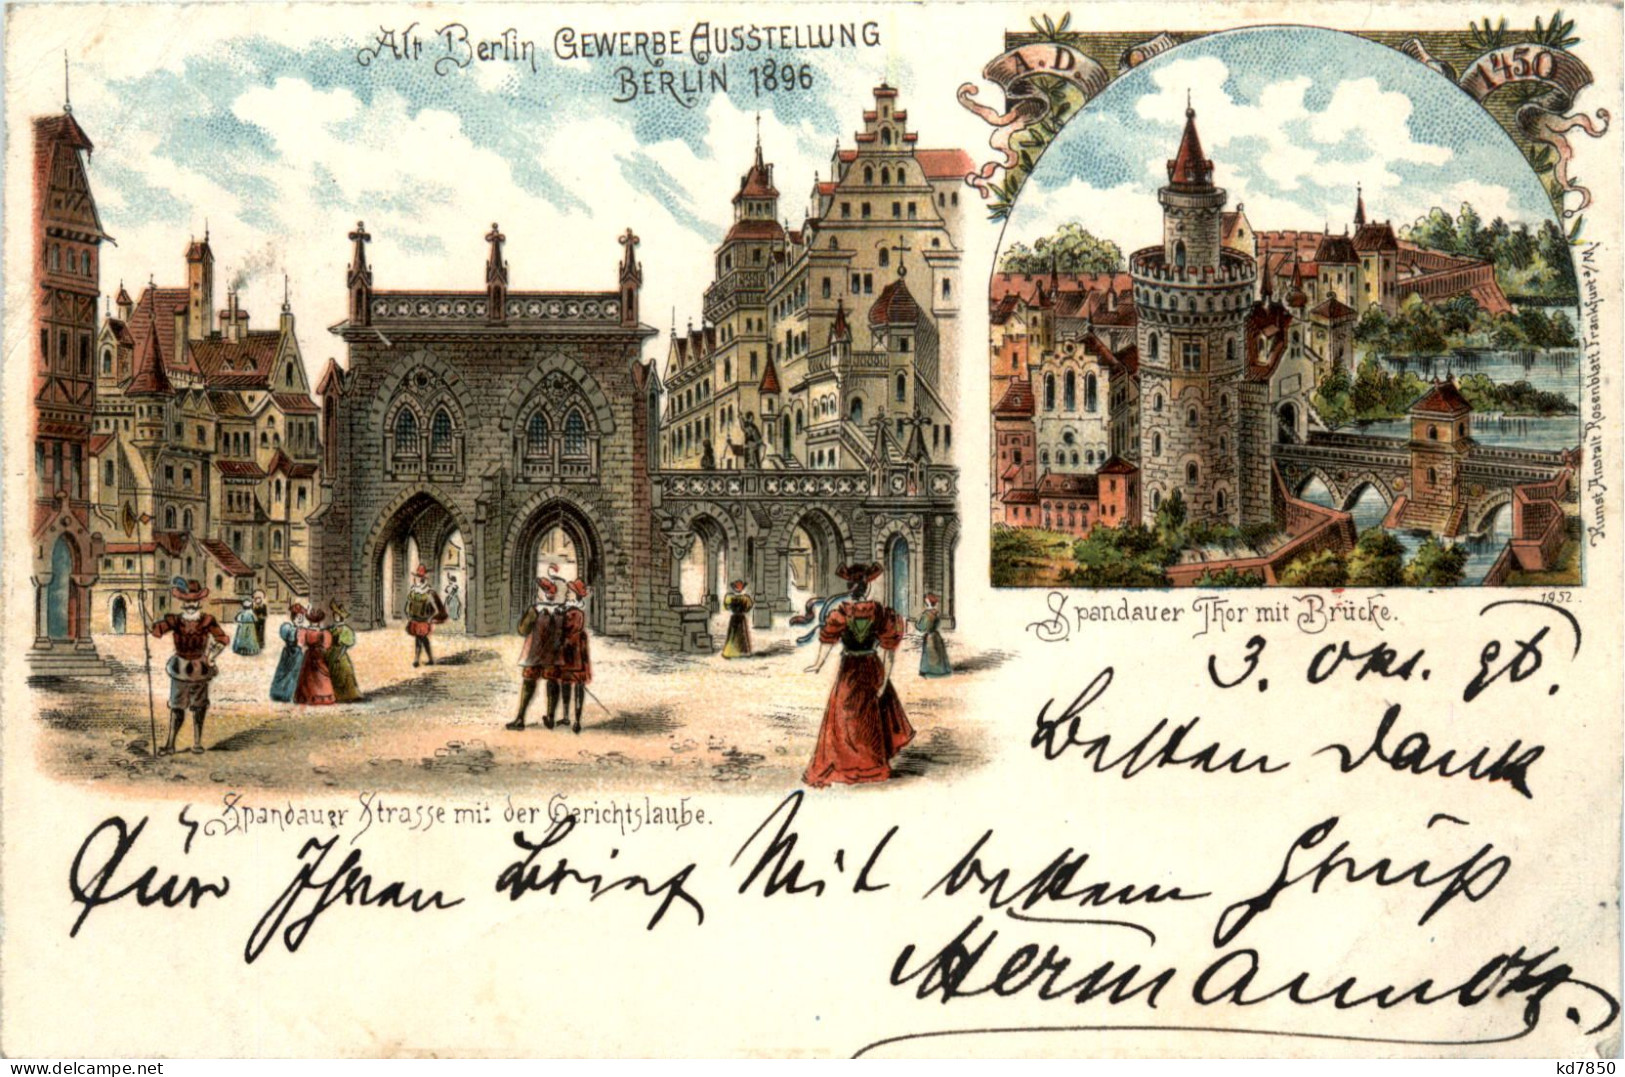 Alt Berlin GEWERBE AUSSTELLUNG
BERLIN 1896
A.D. 1450
Kunst Anstalt Rosenblatt Frankfurt a/M
Spandauer Thor mit Brücke.
1952.
3. Okt. 96.
Besten Dank
Spandauer Strasse mit der Gerichtslaube.
Für Ihren Brief Mit bestem Gruß
Hermann
kd7850